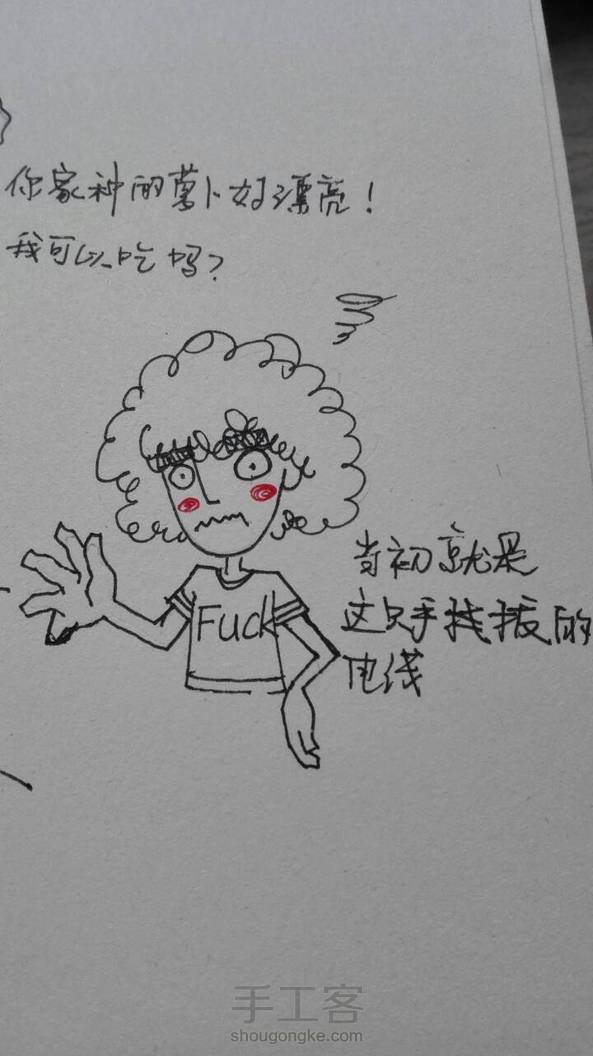 你家种的萝卜好漂亮！
我可以吃吗？
Fuck
当初就是
这只手找拔的
电线
手工客
shougongke.com